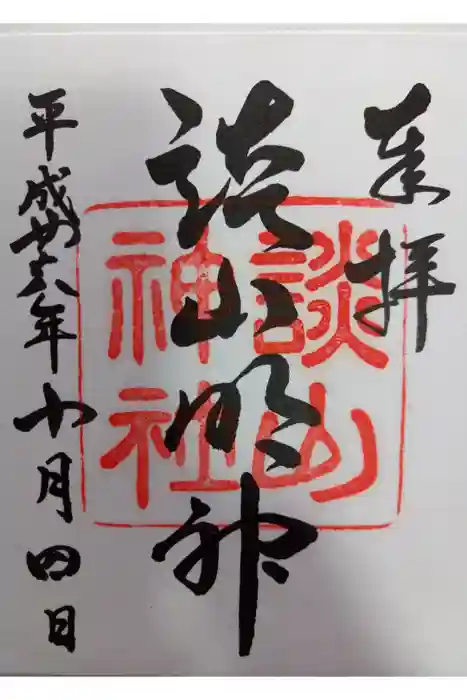 奉拝
談山明神
談山
神社
平成廿六年十月四日